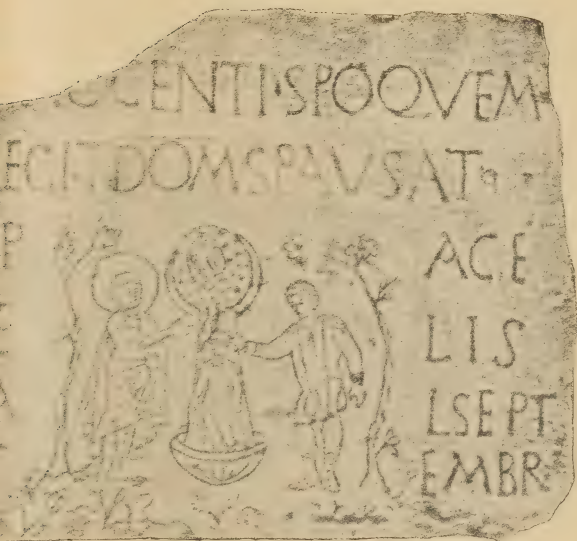 OCENTI·SPOQVEM
EGIT DOMSPAVSAT
P ACE
LIS
LSEPT
EMBR